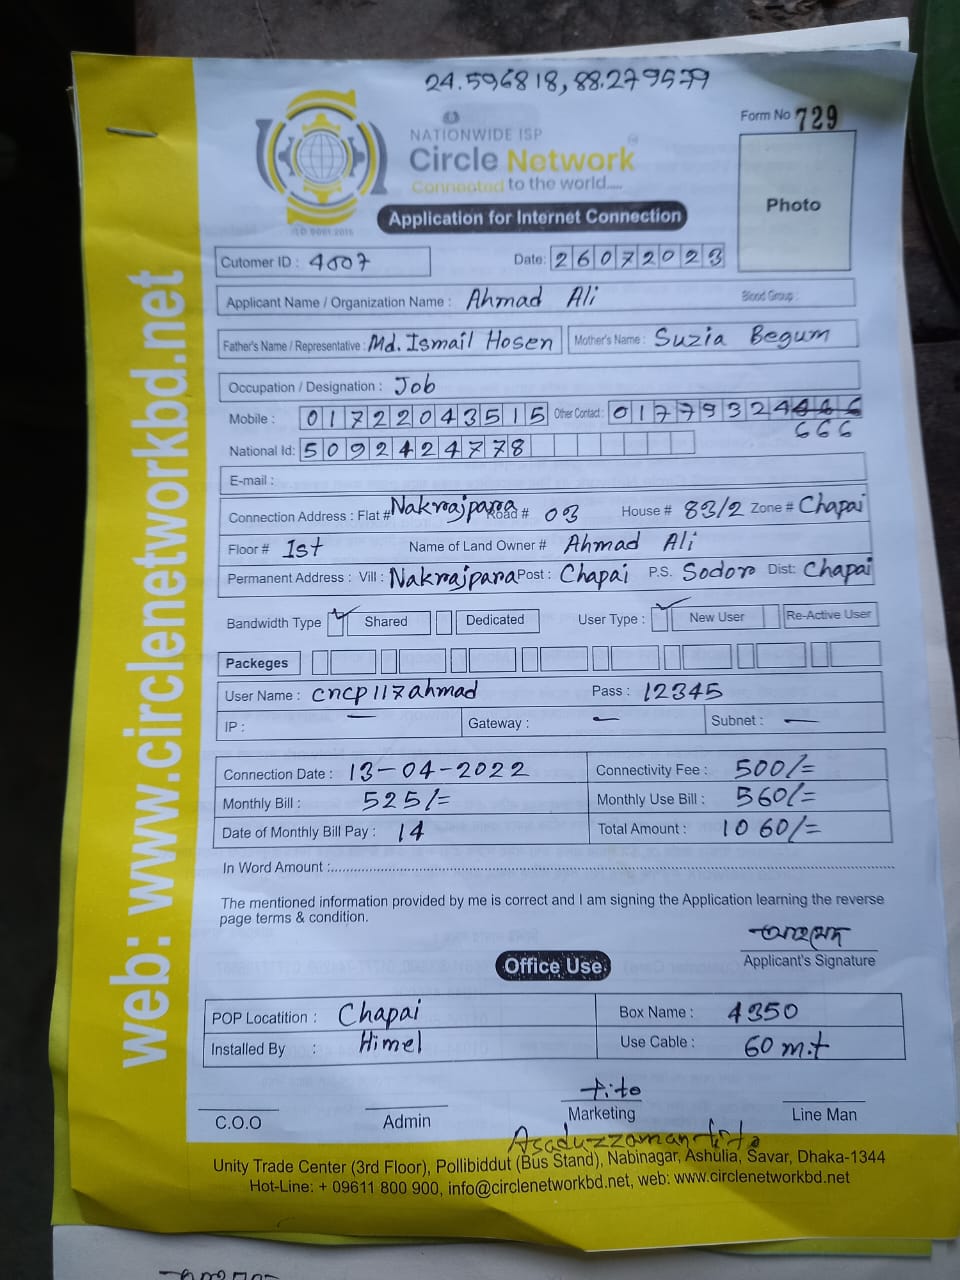 24.596818, 88.279579
Form No 729
NATIONWIDE ISP
Circle Network
Connected to the world.....
ISO 9001:2015
Application for Internet Connection
Photo
Cutomer ID : 4007
Date: 26072023
Applicant Name / Organization Name : Ahmad Ali Blood Group :
Father's Name / Representative : Md. Ismail Hosen Mother's Name : Suzia Begum
Occupation / Designation : Job
Mobile : 01722043515 Other Contact : 01779324666
666
National Id: 5092424778
E-mail :
Connection Address : Flat # Nakrajpara Road # 03 House # 83/2 Zone # Chapai
Floor # 1st Name of Land Owner # Ahmad Ali
Permanent Address : Vill : Nakrajpara Post : Chapai P.S. Sodor Dist: Chapai
Bandwidth Type Shared Dedicated User Type : New User Re-Active User
Packeges
User Name : cncp117ahmad Pass : 12345
IP : — Gateway : — Subnet : —
Connection Date : 13-04-2022 Connectivity Fee : 500/=
Monthly Bill : 525/= Monthly Use Bill : 560/=
Date of Monthly Bill Pay : 14 Total Amount : 1060/=
In Word Amount :
The mentioned information provided by me is correct and I am signing the Application learning the reverse
page terms & condition.
আহমেদ
Applicant's Signature
Office Use
POP Locatition : Chapai Box Name : 4350
Installed By : Himel Use Cable : 60 m.t
tito
C.O.O Admin Marketing Line Man
Asaduzzaman tito
Unity Trade Center (3rd Floor), Pollibiddut (Bus Stand), Nabinagar, Ashulia, Savar, Dhaka-1344
Hot-Line: + 09611 800 900, info@circlenetworkbd.net, web: www.circlenetworkbd.net
web: www.circlenetworkbd.net